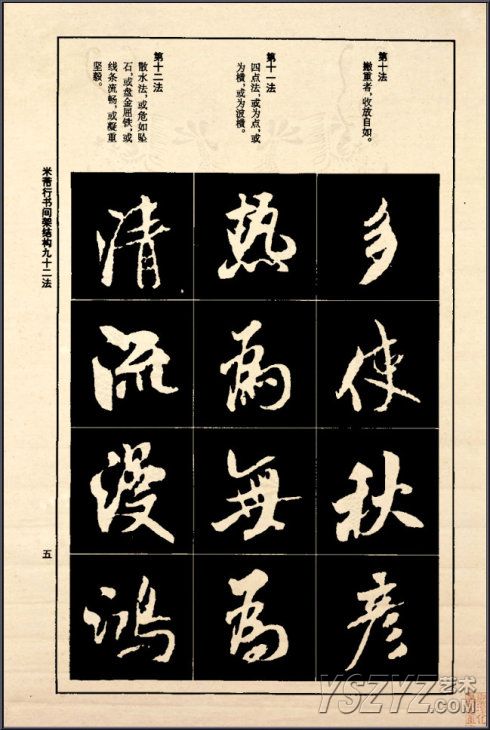 第十法
撇重者，收放自如。
第十一法
四点法，或为点，或
为横，或为波横。
第十二法
散水法，或危如坠
石，或盘金屈铁，或
线条流畅，或凝重
坚毅。
多
使
秋
彦
热
为
無
为
清
流
漫
鸿
米芾行书间架结构九十二法
五
YSZYZ艺术